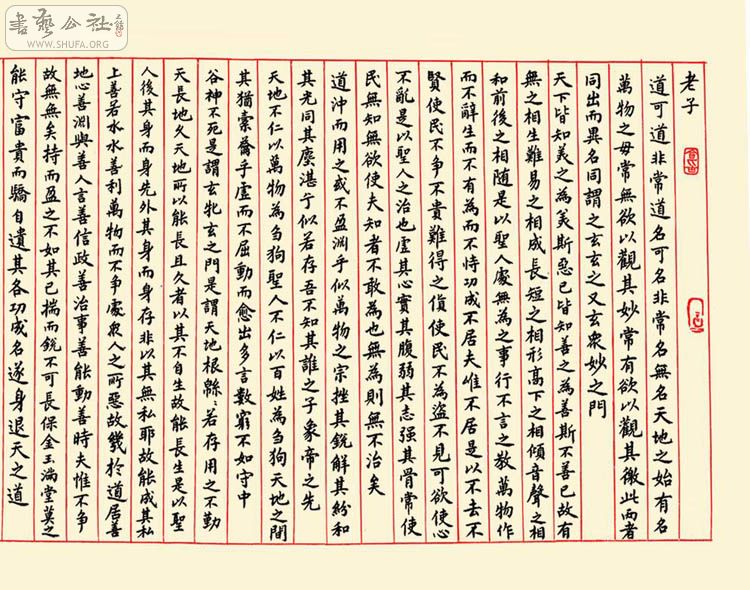 書藝公社
WWW.SHUFA.ORG
老子
道可道非常道名可名非常名無名天地之始有名
萬物之母常無欲以觀其妙常有欲以觀其徼此兩者
同出而異名同謂之玄玄之又玄衆妙之門
天下皆知美之為美斯惡已皆知善之為善斯不善已故有
無之相生難易之相成長短之相形高下之相傾音聲之相
和前後之相隨是以聖人處無為之事行不言之教萬物作
而不辭生而不有為而不恃功成不居夫唯不居是以不去不
賢使民不爭不貴難得之貨使民不為盜不見可欲使心
不亂是以聖人之治也虛其心實其腹弱其志强其骨常使
民無知無欲使夫知者不敢為也無為則無不治矣
道沖而用之或不盈淵乎似萬物之宗挫其銳解其紛和
其光同其塵湛兮似若存吾不知其誰之子象帝之先
天地不仁以萬物為芻狗聖人不仁以百姓為芻狗天地之間
其猶橐籥乎虛而不屈動而愈出多言數窮不如守中
谷神不死是謂玄牝玄之門是謂天地根緜〻若存用之不勤
天長地久天地所以能長且久者以其不自生故能長生是以聖
人後其身而身先外其身而身存非以其無私耶故能成其私
上善若水水善利萬物而不爭處衆人之所惡故幾於道居善
地心善淵與善人言善信政善治事善能動善時夫惟不爭
故無無矣持而盈之不如其已揣而銳不可長保金玉滿堂莫之
能守富貴而驕自遺其咎功成名遂身退天之道